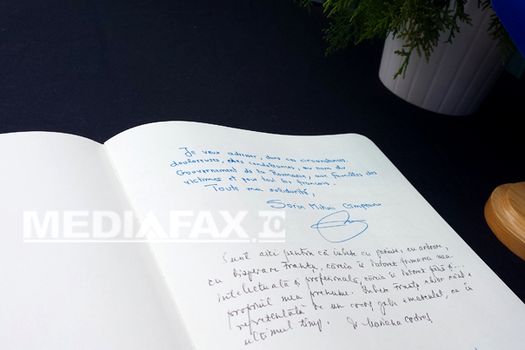 Je veux adresser, dans ces circonstances
douloureuses, mes condoléances, au nom du
Gouvernement de la Roumanie, aux familles des
victimes et aux tous les français.
Toute ma solidarité,
Sorin Mihai Cimpeanu
MEDIAFAX.RO
Sunt aici pentru că iubesc cu pasiune, cu ardoare,
cu disperare Franța, căreia îi datorez formarea mea
intelectuală și profesională, căreia îi datorez până și
propriul meu prenume. Iubesc Franța
reprezentată de un cocoș galic
ultimul timp. Dr. Mariana